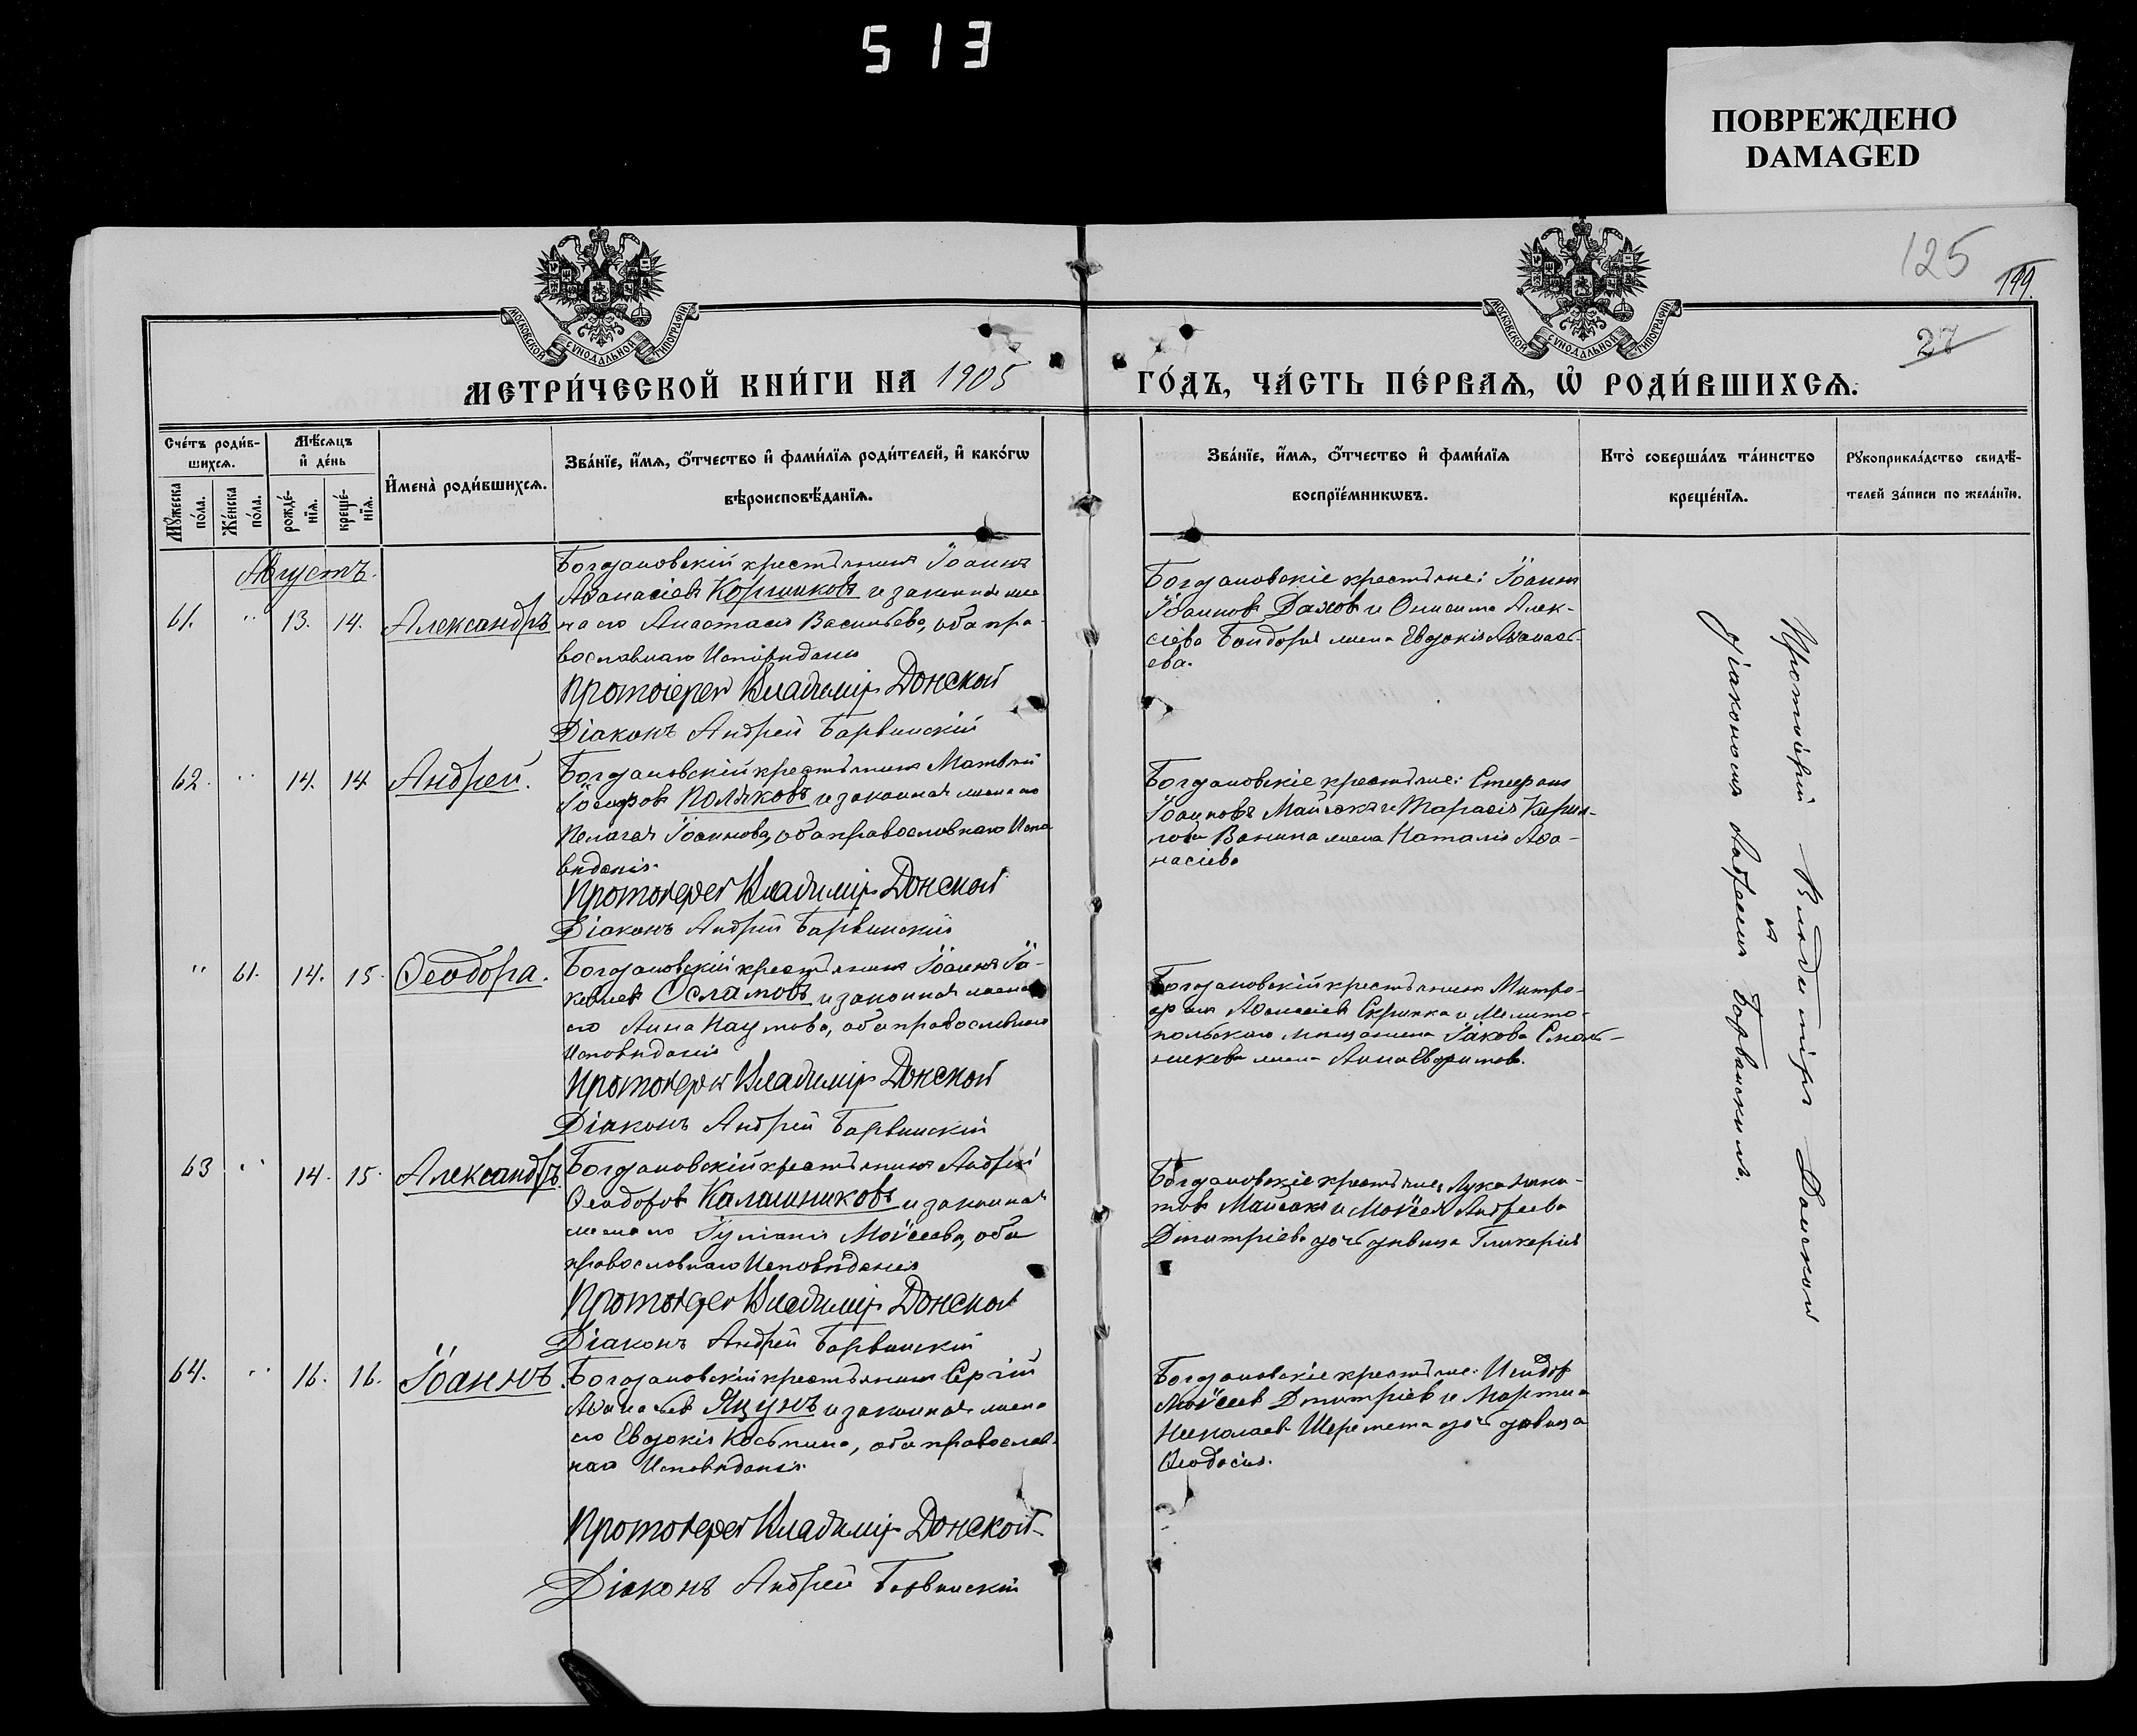 513
ПОВРЕЖДЕНО
DAMAGED
125
149.
27
МОСКОВСКОЙ СУНОДАЛЬНОЙ ТИПОГРАФІИ
МОСКОВСКОЙ СУНОДАЛЬНОЙ ТИПОГРАФІИ
МЕТРИ́ЧЕСКОЙ КНИ́ГИ НА 1905 ГО́ДЪ, ЧА́СТЬ ПЕ́РВАѦ, Ѡ РОДИ́ВШИХСѦ.
Сче́тъ роди́в-
шихсѧ.
Мѣ́сѧцъ
и҆ де́нь
Мꙋ́жеска по́ла.
Же́нска по́ла.
рожде́-
нїѧ.
креще́-
нїѧ.
И҆мена̀ роди́вшихсѧ.
Зва́нїе, и҆́мѧ, ѻ҆́тчество и҆ фами́лїѧ роди́телей, и҆ како́гѡ
вѣроисповѣ́данїѧ.
Зва́нїе, и҆́мѧ, ѻ҆́тчество и҆ фами́лїѧ
воспрїе́мникѡвъ.
Кто̀ соверша́лъ та́инство
креще́нїѧ.
Рꙋкоприкла́дство свидѣ́-
телей за́писи по жела́нїю.
Августъ.
61. " 13. 14. Александръ
Богдановскій крестьянинъ Іоаннъ
Аѳанасіевъ Коршиковъ и законная же
на его Анастасія Васильева, оба пра-
вославнаго Исповѣданія
Протоіерей Владиміръ Донской
Діаконъ Андрей Барвинскій
Богдановскіе крестьяне: Іоаннъ
Іоанновъ Даховъ и Онисима Алек-
сіева Бондаря жена Евдокія Аѳанась-
ева.
62. " 14. 14 Андрей.
Богдановскій крестьянинъ Матвѣй
Іосифовъ Поляковъ и законная жена его
Пелагея Іоаннова, оба православнаго Испо
вѣданія.
Протоіерей Владиміръ Донской
Діаконъ Андрей Барвинскій
Богдановскіе крестьяне: Стефанъ
Іоанновъ Майсакъ и Тарасія Кирил-
лова Ванина жена Наталія Аѳа-
насіева
" 61. 14. 15. Ѳеодора.
Богдановскій крестьянинъ Іоаннъ Іа-
ковлевъ Осламовъ и законная жена
его Анна Наумова, оба православнаго
Исповѣданія
Протоіерей Владиміръ Донской
Діаконъ Андрей Барвинскій
Богдановскій крестьянинъ Митро-
фанъ Аѳанасіевъ Скрипка и Мелито-
польскаго мѣщанина Іакова
жена Анна Евфимова.
63 " 14. 15. Александръ
Богдановскій крестьянинъ Андрей
Ѳеодоровъ Калашниковъ и законная
жена его Іуліанія Моѵсеева, оба
православнаго Исповѣданія
Протоіерей Владиміръ Донской
Діаконъ Андрей Барвинскій
Богдановскіе крестьяне: Лука Ники-
товъ Майсакъ и Моѵсея Андреева
Дмитріева дочь дѣвица Гликерія
64. " 16. 16. Іоаннъ.
Богдановскій крестьянинъ Сергій
Аѳанасьевъ Яцунъ и законная жена
его Евдокія Косьмина, оба православ-
наго Исповѣданія.
Протоіерей Владиміръ Донской
Діаконъ Андрей Барвинскій
Богдановскіе крестьяне: Исидоръ
Моѵсеевъ Дмитріевъ и Мартина
Николаева Шеремета дочь дѣвица
Ѳеодосія.
Протоіерей Владиміръ Донской
съ
діакономъ Андреемъ Барвинскимъ.